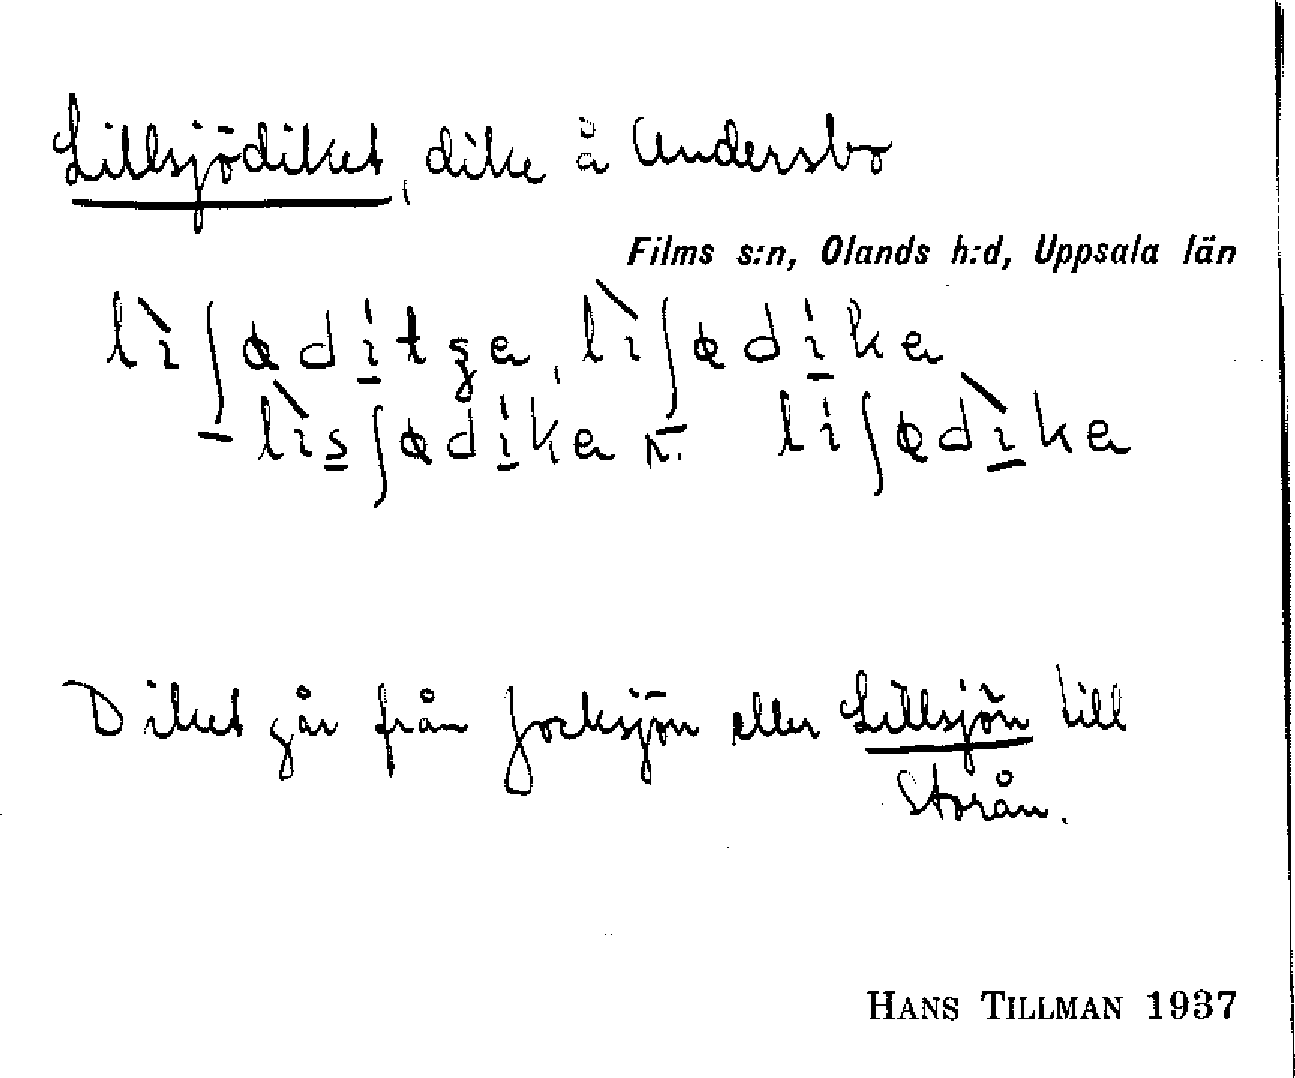 Lillsjödiket, dike å Andersbo
Films s:n, Olands h:d, Uppsala län
lìʃødi̱tʒa, lìʃødi̱ka
- lìs̱ʃødi̱ka r. - liʃødì̱ka
Diket går från Jocksjön eller Lillsjön till
Storån.
HANS TILLMAN 1937